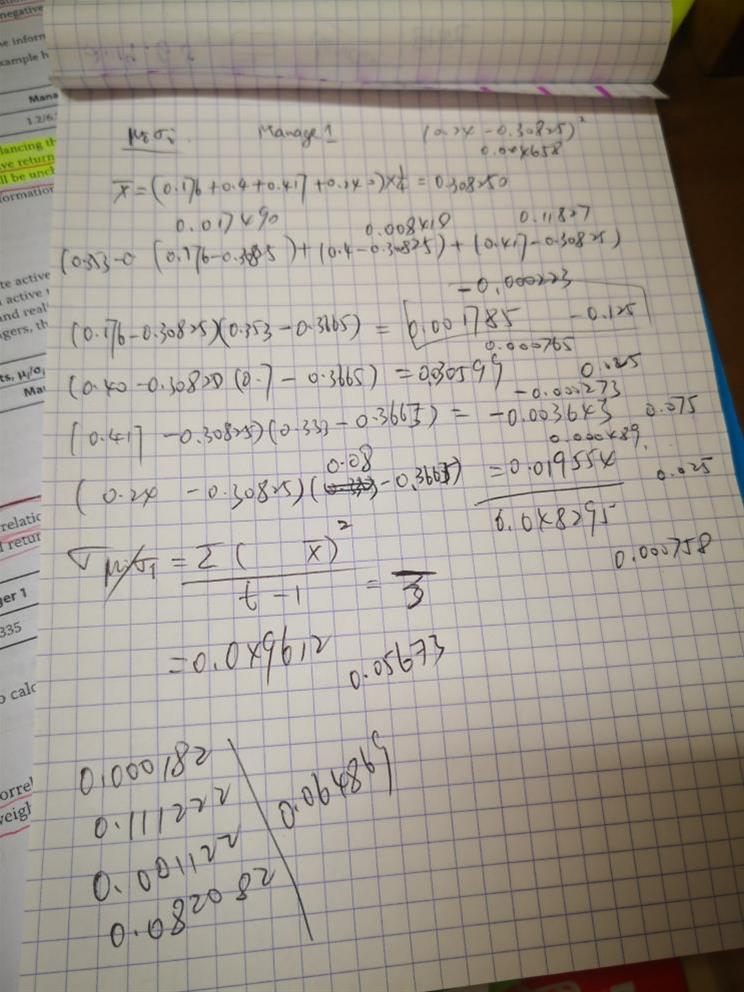 negative
e inform
xample h
Mana
1.2/6.
lancing th
ve return
ll be uncl
ormation
te active
active
and real
gers, th
ts, μ/σ,
Ma
relatic
retur
ger 1
335
o calc
orrel
weigh
μ₁σᵢ Manage 1 (0.24 - 0.30825)²
0.004658
x̄ = (0.176 + 0.4 + 0.417 + 0.240) × ¼ = 0.308250
0.017490 0.008418 0.11827
(0.353-0 (0.176-0.3085) + (0.4-0.30825) + (0.417-0.30825)
-0.000223
(0.176-0.30825)(0.353-0.3665) = 0.001785 -0.125
0.000765
(0.40-0.30825)(0.7-0.3665) = 0.030599 0.025
-0.000273
(0.417-0.30825)(0.333-0.3665) = -0.003643 0.075
0.000489
0.08
(0.24 - 0.30825)( -0.3665) = 0.019554 0.025
0.048295
0.000758
x̄)²
t - 1 = 3
= 0.049612
0.05673
0.000182
0.111222 0.064869
0.001122
0.082082